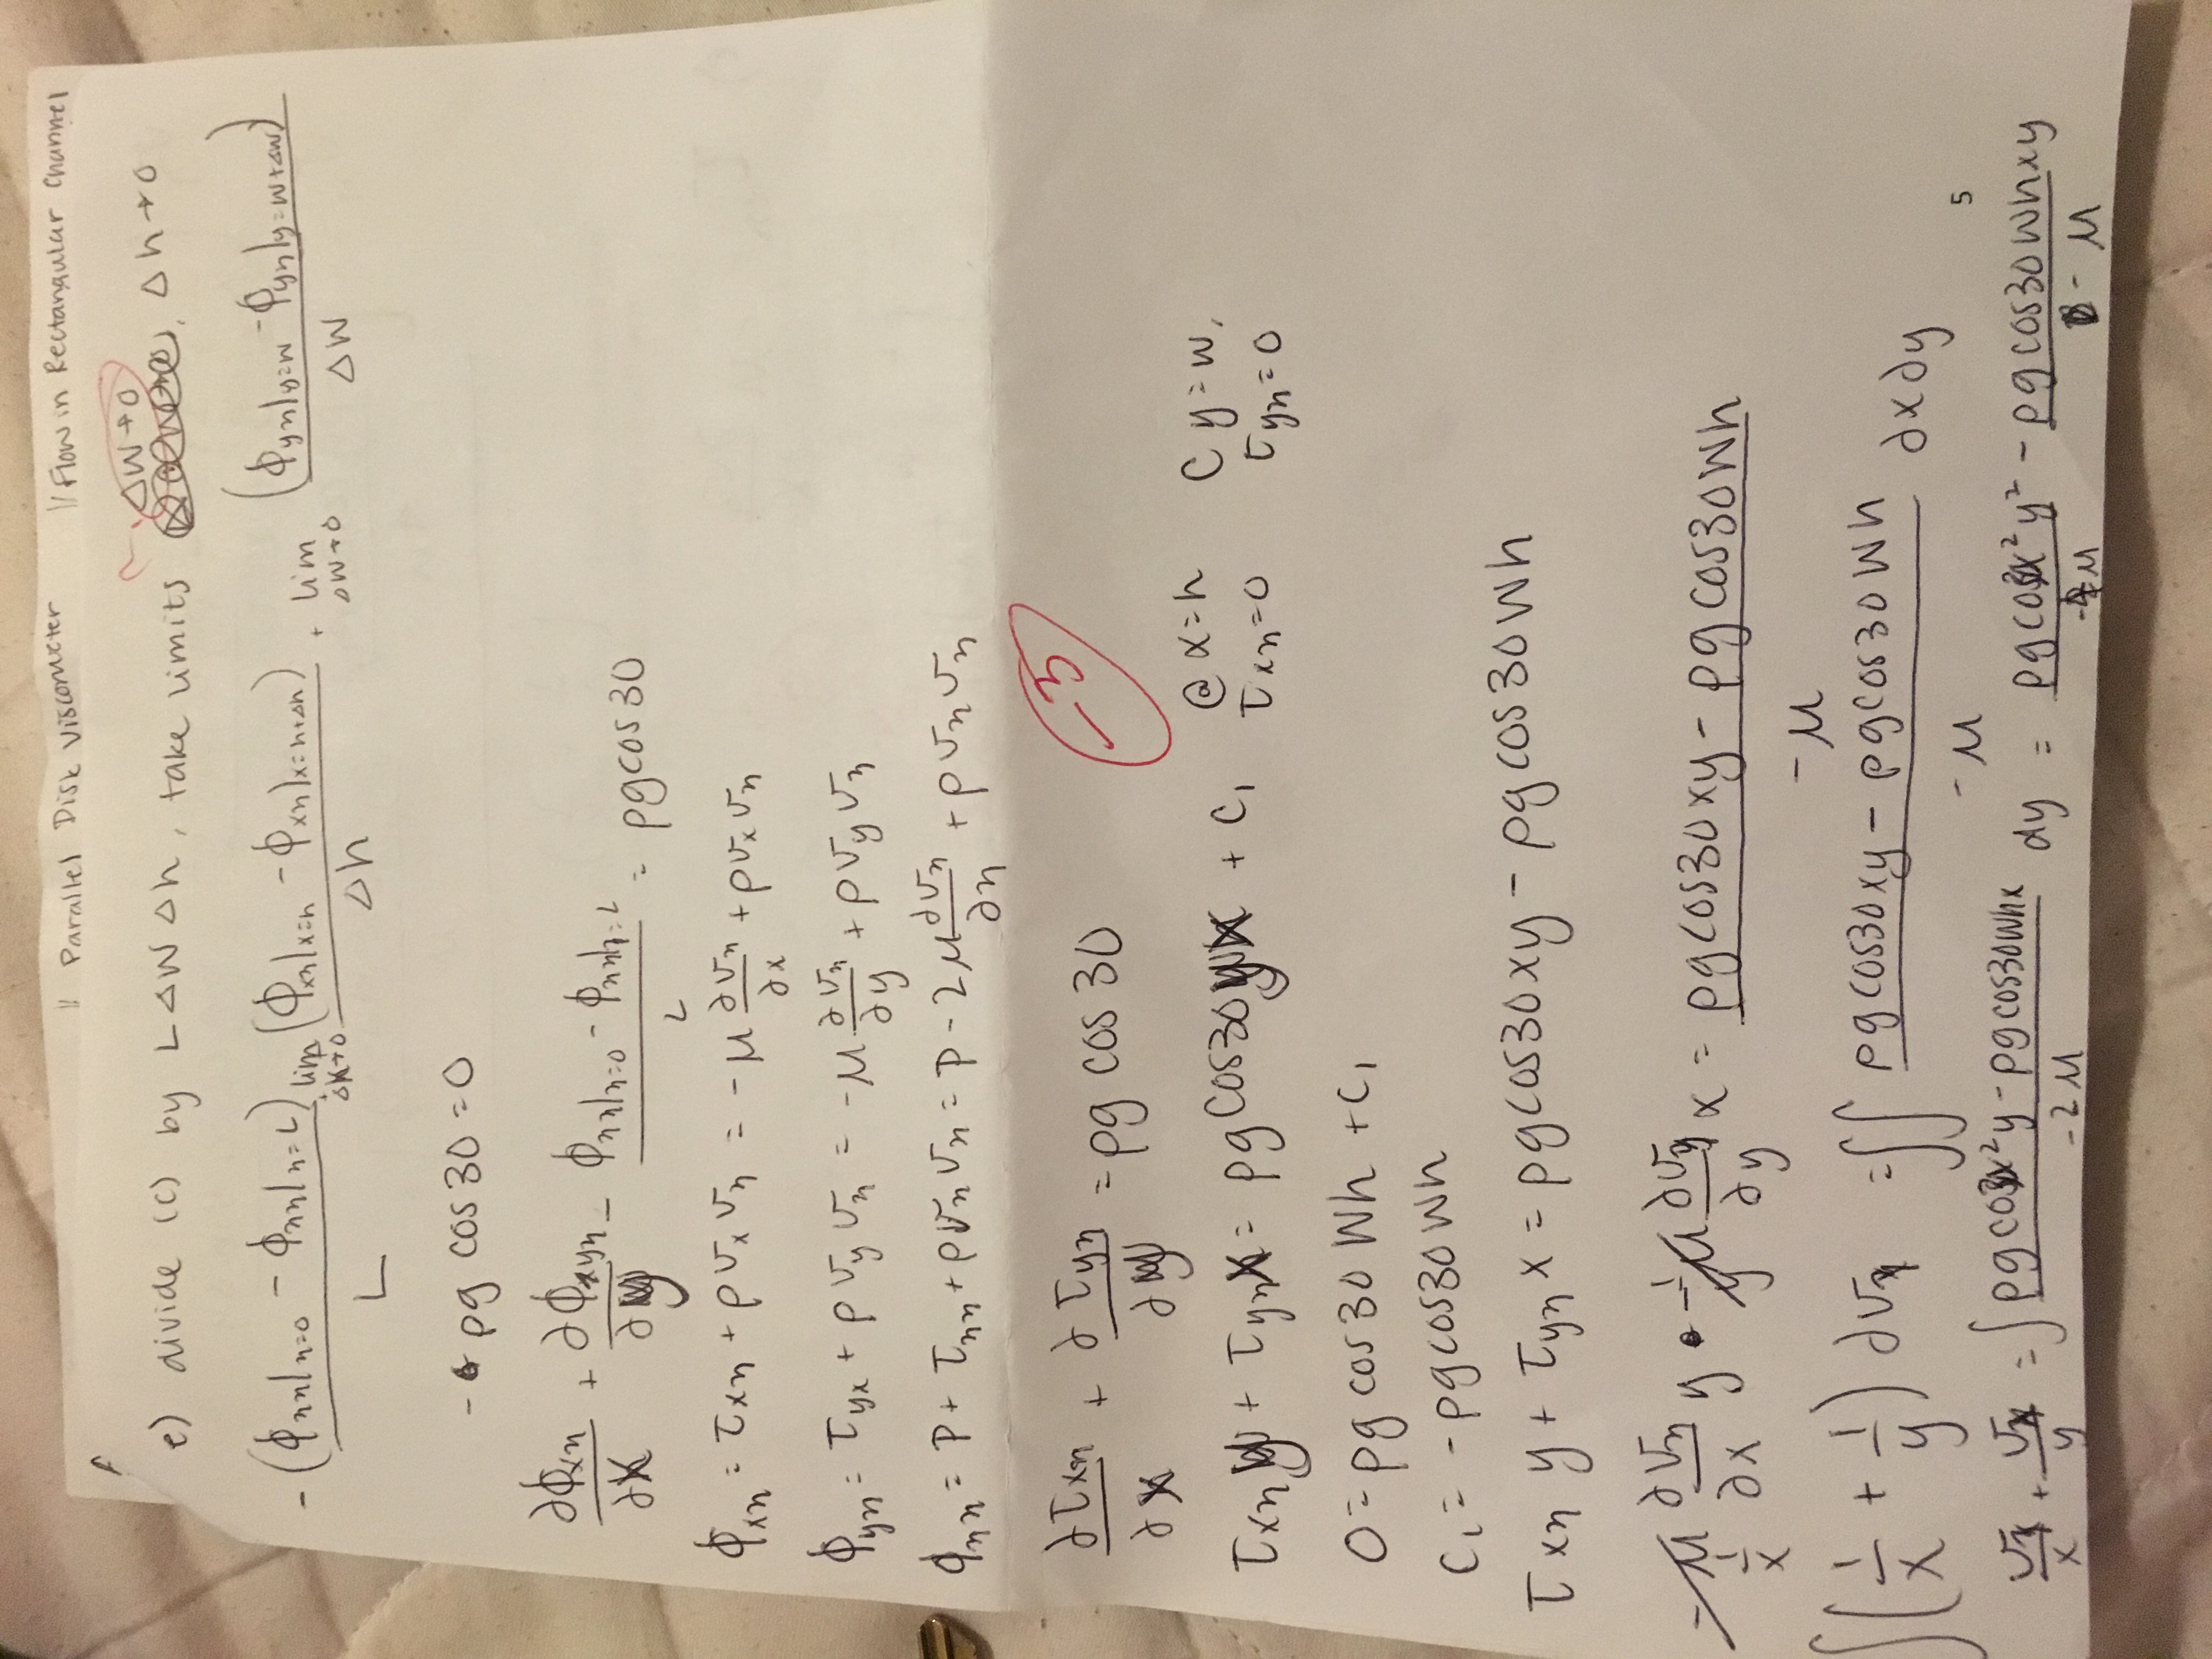 // Parallel Disk Viscometer // Flow in Rectangular Channel
e) divide (c) by L ΔW Δh, take limits ΔW→0, Δh→0
-(ϕzz|z=0 - ϕzz|z=L)/L + lim Δh→0 (ϕxz|x=h - ϕxz|x=h+Δh)/Δh + lim ΔW→0 (ϕyz|y=w - ϕyz|y=w+Δw)/ΔW
- ρg cos30 = 0
∂ϕxz/∂x + ∂ϕyz/∂y - (ϕzz|z=0 - ϕzz|z=L)/L = ρg cos30
ϕxz = τxz + ρvxvz = -μ ∂vz/∂x + ρvxvz
ϕyz = τyx + ρvyvz = -μ ∂vz/∂y + ρvyvz
ϕzz = P + τzz + ρvzvz = P - 2μ ∂vz/∂z + ρvzvz
-3
∂τxz/∂x + ∂τyz/∂y = ρg cos 30
τxz y + τyz x = ρg cos30 yx + c1 @ x=h τxz=0 @ y=w, τyz=0
0 = ρg cos30 Wh + c1
c1 = -ρg cos30 Wh
τxz y + τyz x = ρg cos30 xy - ρg cos30 Wh
-μ 1/x ∂vz/∂x y - 1/y μ ∂vz/∂y x = (ρg cos30 xy - ρg cos30 Wh)/-μ
∫(1/x + 1/y) ∂vz = ∫∫ (ρg cos30 xy - ρg cos30 Wh)/-μ ∂x∂y
5
vz/x + vz/y = ∫ (ρg cos30x²y - ρg cos30 Whx)/-2μ dy = ρg cos30x²y²/-4μ - ρg cos30 Whxy/-μ